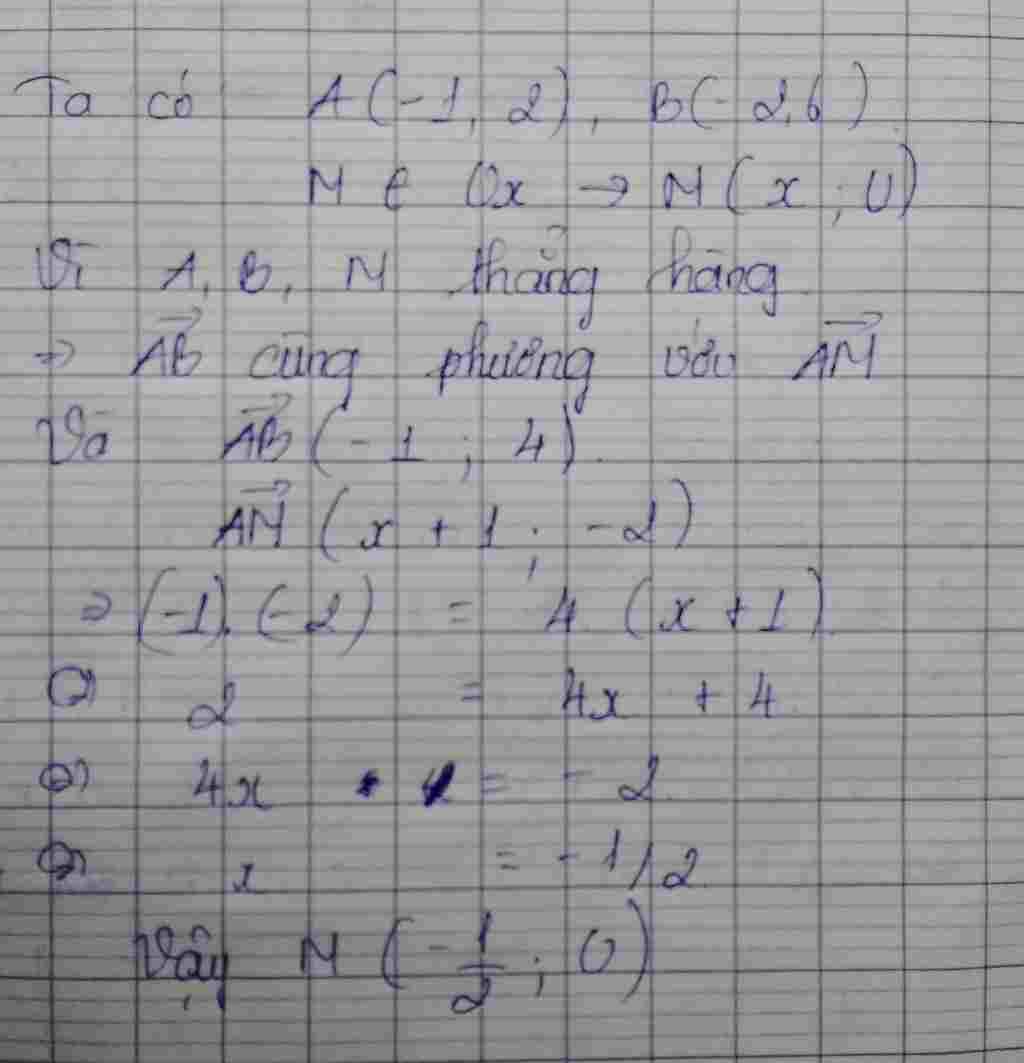 Ta có A(-1, 2), B(-2,6)
M ∈ Ox → M(x ; 0)
Vì A, B, M thẳng hàng
⇒ \overrightarrow{AB} cùng phương với \overrightarrow{AM}
Và \overrightarrow{AB} (-1 ; 4).
\overrightarrow{AM} (x + 1 ; -2)
⇒ (-1).(-2) = 4 (x + 1)
⇔ 2 = 4x + 4
⇔ 4x = -2
⇔ x = -1/2
Vậy M (-\frac{1}{2} ; 0)